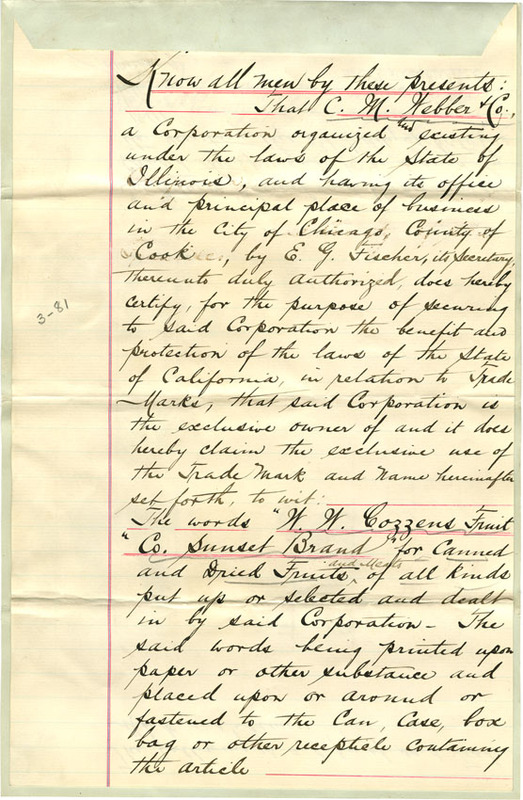 Know all men by these presents:
That C. M. Webber & Co.,
a Corporation organized and existing
under the laws of the State of
Illinois, and having its office
and principal place of business
in the City of Chicago, County of
Cook, by E. G. Fischer, its Secretary,
thereunto duly authorized, does hereby
certify, for the purpose of securing
to said Corporation the benefit and
protection of the laws of the State
of California, in relation to Trade
Marks, that said Corporation is
the exclusive owner of and it does
hereby claim the exclusive use of
the Trade Mark and Name hereinafter
set forth, to wit:
The words "W. W. Cozzens Fruit
"Co. Sunset Brand" for Canned
and Dried Fruits and Meats, of all kinds
put up or selected and dealt
in by said Corporation - The
said words being printed upon
paper or other substance and
placed upon or around or
fastened to the Can, Case, box
bag or other recepticle containing
the article
3-81